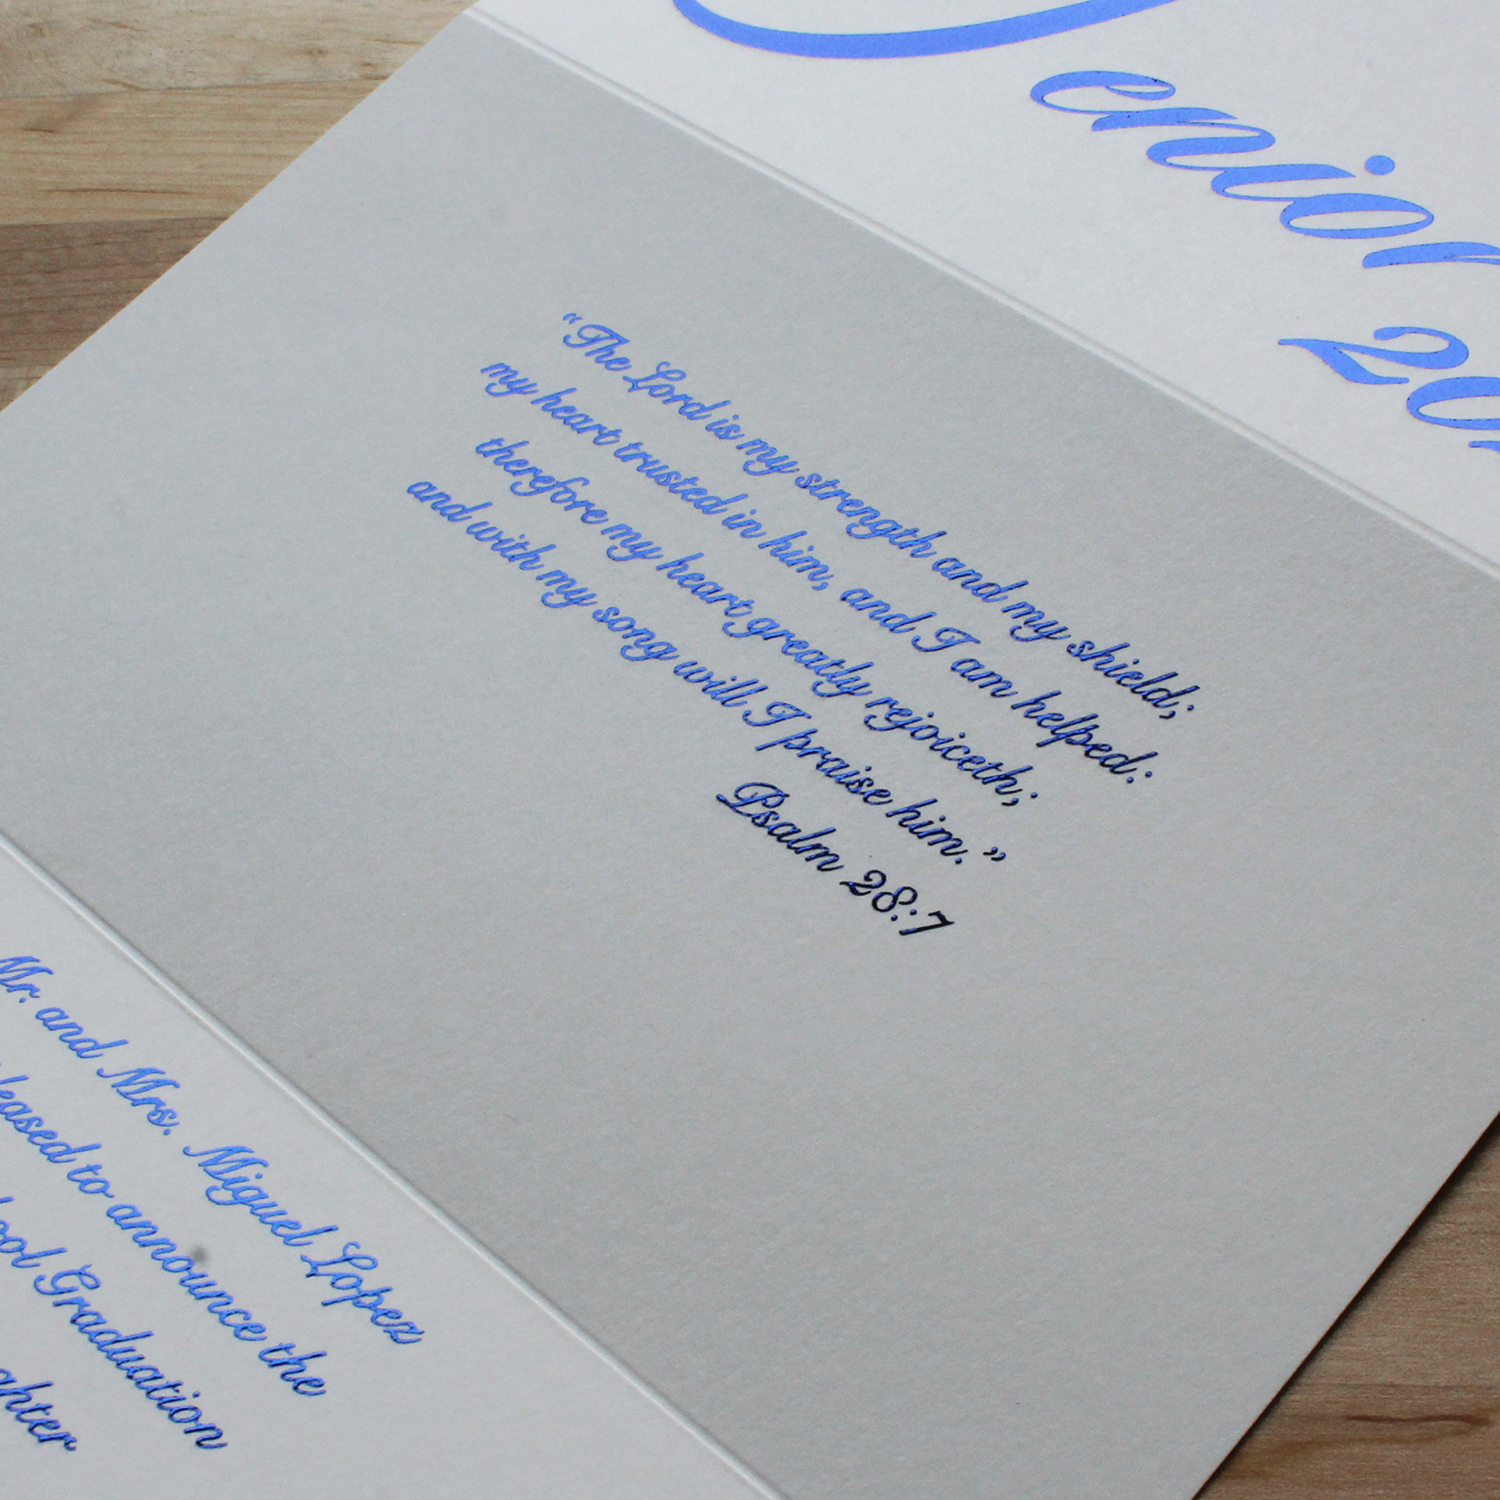 enior
“The Lord is my strength and my shield;
my heart trusted in him, and I am helped:
therefore my heart greatly rejoiceth;
and with my song will I praise him.”
Psalm 28:7
Mr. and Mrs. Miguel Lopez
leased to announce the
ool Graduation
ghter